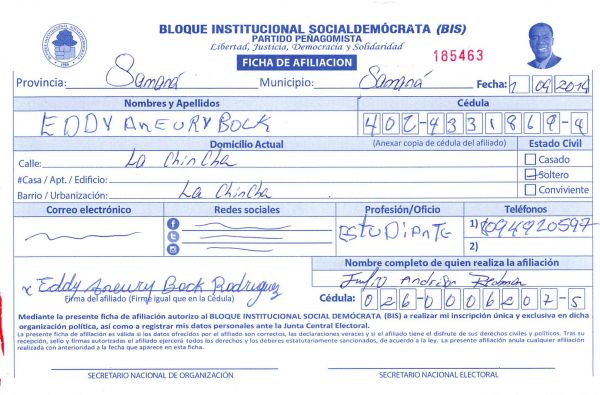 BLOQUE INSTITUCIONAL SOCIALDEMÓCRATA (BIS)
PARTIDO PEÑAGOMISTA
Libertad, Justicia, Democracia y Solidaridad
FICHA DE AFILIACION
185463
Provincia: Samaná Municipio: Samaná Fecha: 1 09 2019
Nombres y Apellidos Cédula
EDDY ANEURY BOCK 402-4331869-9
Domicilio Actual (Anexar copia de cédula del afiliado) Estado Civil
Calle: La Chincha Casado
#Casa / Apt. / Edificio: Soltero
Barrio / Urbanización: La Chincha Conviviente
Correo electrónico Redes sociales Profesión/Oficio Teléfonos
ESTUDIANTE 1) 8094920597
2)
Nombre completo de quien realiza la afiliación
Eddy Aneury Bock Rodriguez
Firma del afiliado (Firme igual que en la Cédula) Cédula: 026-0006207-5
Mediante la presente ficha de afiliación autorizo al BLOQUE INSTITUCIONAL SOCIAL DEMÓCRATA (BIS) a realizar mi inscripción única y exclusiva en dicha
organización política, así como a registrar mis datos personales ante la Junta Central Electoral.
La presente ficha de afiliación es válida si los datos ofrecidos por el afiliado son correctos, las declaraciones veraces y si el afiliado tiene el disfrute de sus derechos civiles y políticos. Tras su
recepción, sello y firmas autorizadas el afiliado ejercerá todos los derechos y los deberes estatutariamente sancionados, de acuerdo a la ley. La presente afiliación anula cualquier afiliación
realizada con anterioridad a la fecha que aparece en esta ficha.
SECRETARIO NACIONAL DE ORGANIZACIÓN SECRETARIO NACIONAL ELECTORAL